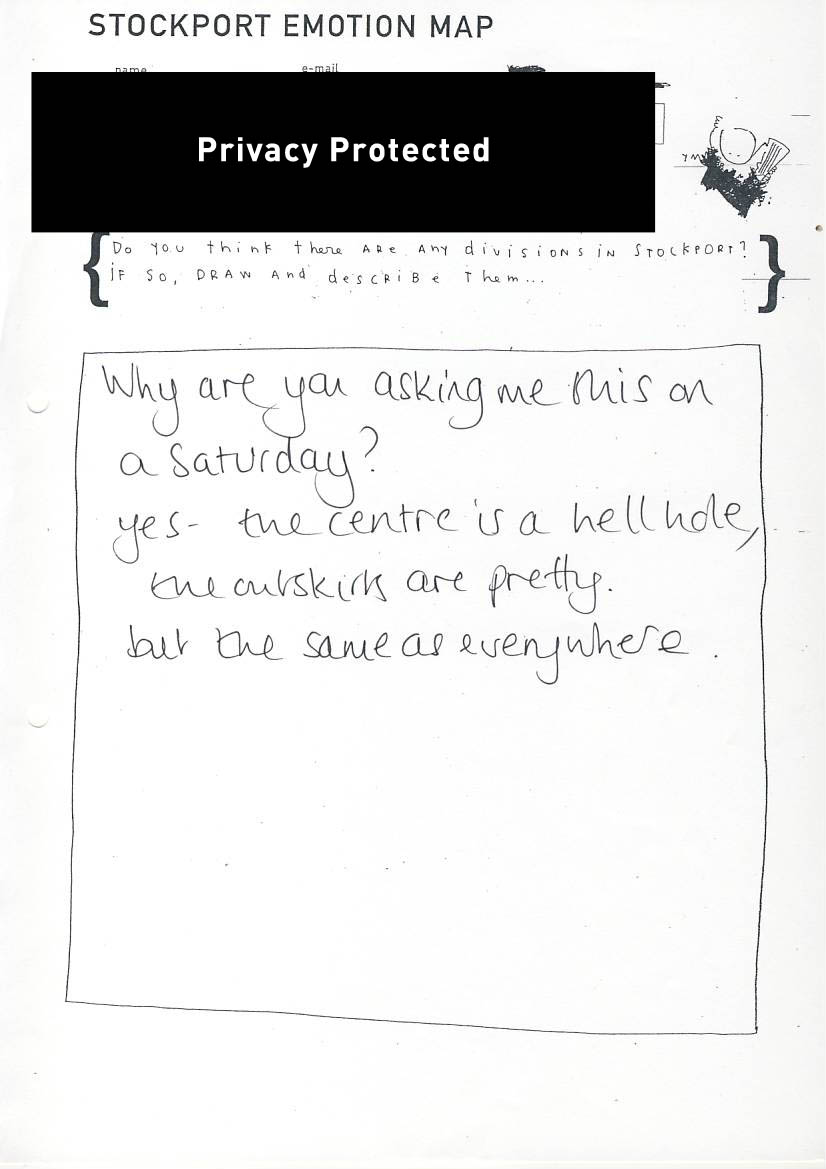 STOCKPORT EMOTION MAP
name e-mail
Privacy Protected
Do you think there ARE Any divisions in STOCKPORT?
iF So, DRAW And descRiBe Them...
Why are you asking me this on
a Saturday?
yes- the centre is a hell hole,
the outskirts are pretty.
but the same as everywhere.